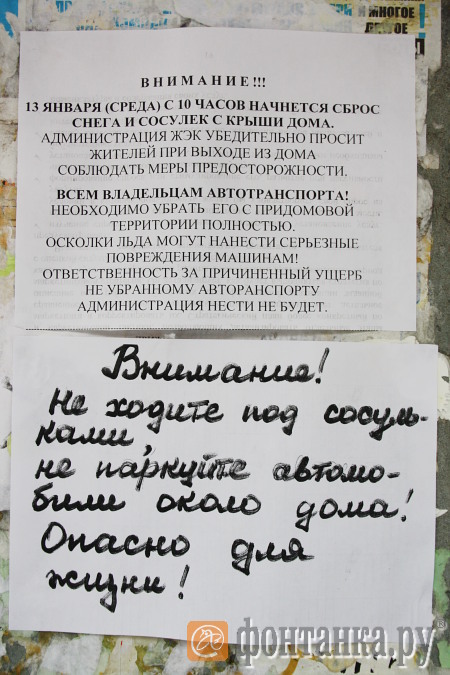 Я МНОГОЕ
ДРУГОЕ
ВНИМАНИЕ!!!
13 ЯНВАРЯ (СРЕДА) С 10 ЧАСОВ НАЧНЕТСЯ СБРОС
СНЕГА И СОСУЛЕК С КРЫШИ ДОМА.
АДМИНИСТРАЦИЯ ЖЭК УБЕДИТЕЛЬНО ПРОСИТ
ЖИТЕЛЕЙ ПРИ ВЫХОДЕ ИЗ ДОМА
СОБЛЮДАТЬ МЕРЫ ПРЕДОСТОРОЖНОСТИ.
ВСЕМ ВЛАДЕЛЬЦАМ АВТОТРАНСПОРТА!
НЕОБХОДИМО УБРАТЬ ЕГО С ПРИДОМОВОЙ
ТЕРРИТОРИИ ПОЛНОСТЬЮ.
ОСКОЛКИ ЛЬДА МОГУТ НАНЕСТИ СЕРЬЕЗНЫЕ
ПОВРЕЖДЕНИЯ МАШИНАМ!
ОТВЕТСТВЕННОСТЬ ЗА ПРИЧИНЕННЫЙ УЩЕРБ
НЕ УБРАННОМУ АВТОРАНСПОРТУ
АДМИНИСТРАЦИЯ НЕСТИ НЕ БУДЕТ.
Внимание!
Не ходите под сосуль-
ками,
не паркуйте автомо-
били около дома!
Опасно для
жизни!
фонтанка.ру